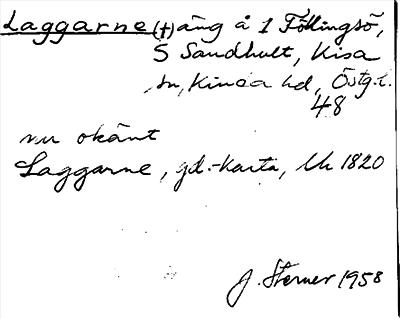 Laggarne (†) äng å 1 Föllingsö,
S Sandhult, Kisa
sn, Kinda hd, Östg.l.
48
nu okänt
Laggarne, gd.-karta, Uh 1820
J. Sterner 1958